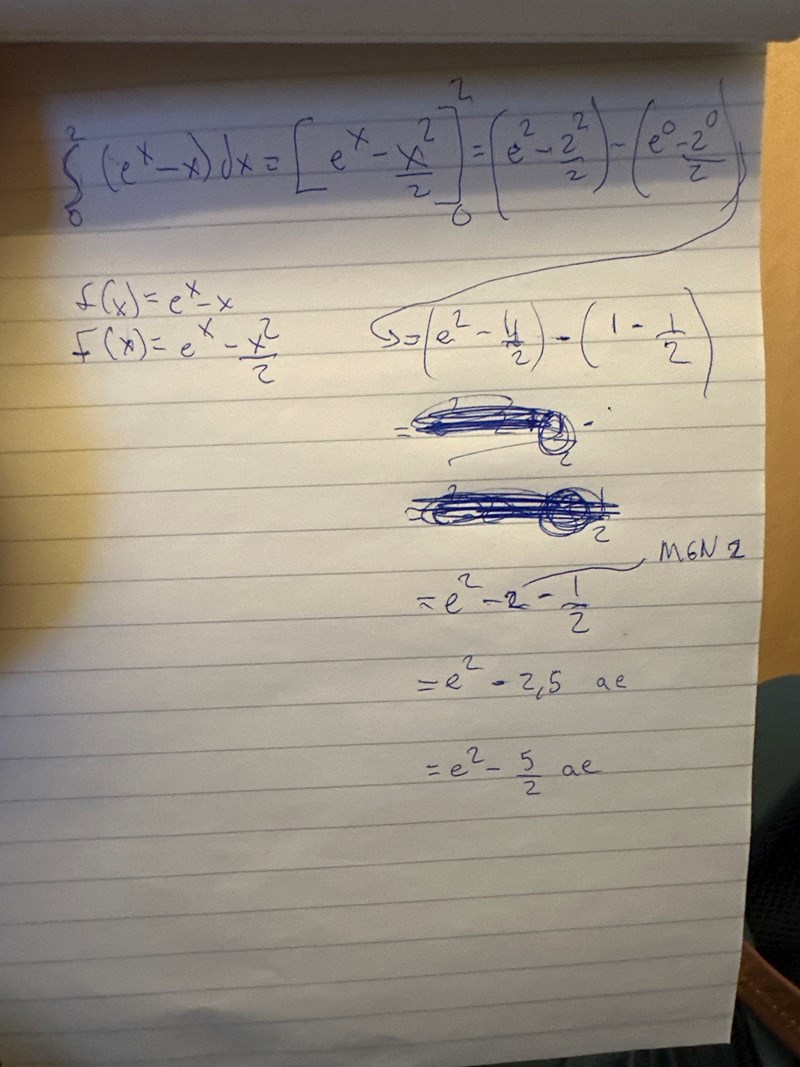 ∫₀² (eˣ - x) dx = [eˣ - x²/2]₀² = (e² - 2²/2) - (e⁰ - 2⁰/2)
f(x) = eˣ - x
F(x) = eˣ - x²/2
= (e² - 4/2) - (1 - 1/2)
=
=
MGN 2
= e² - 2 - 1/2
= e² - 2,5 ae
= e² - 5/2 ae